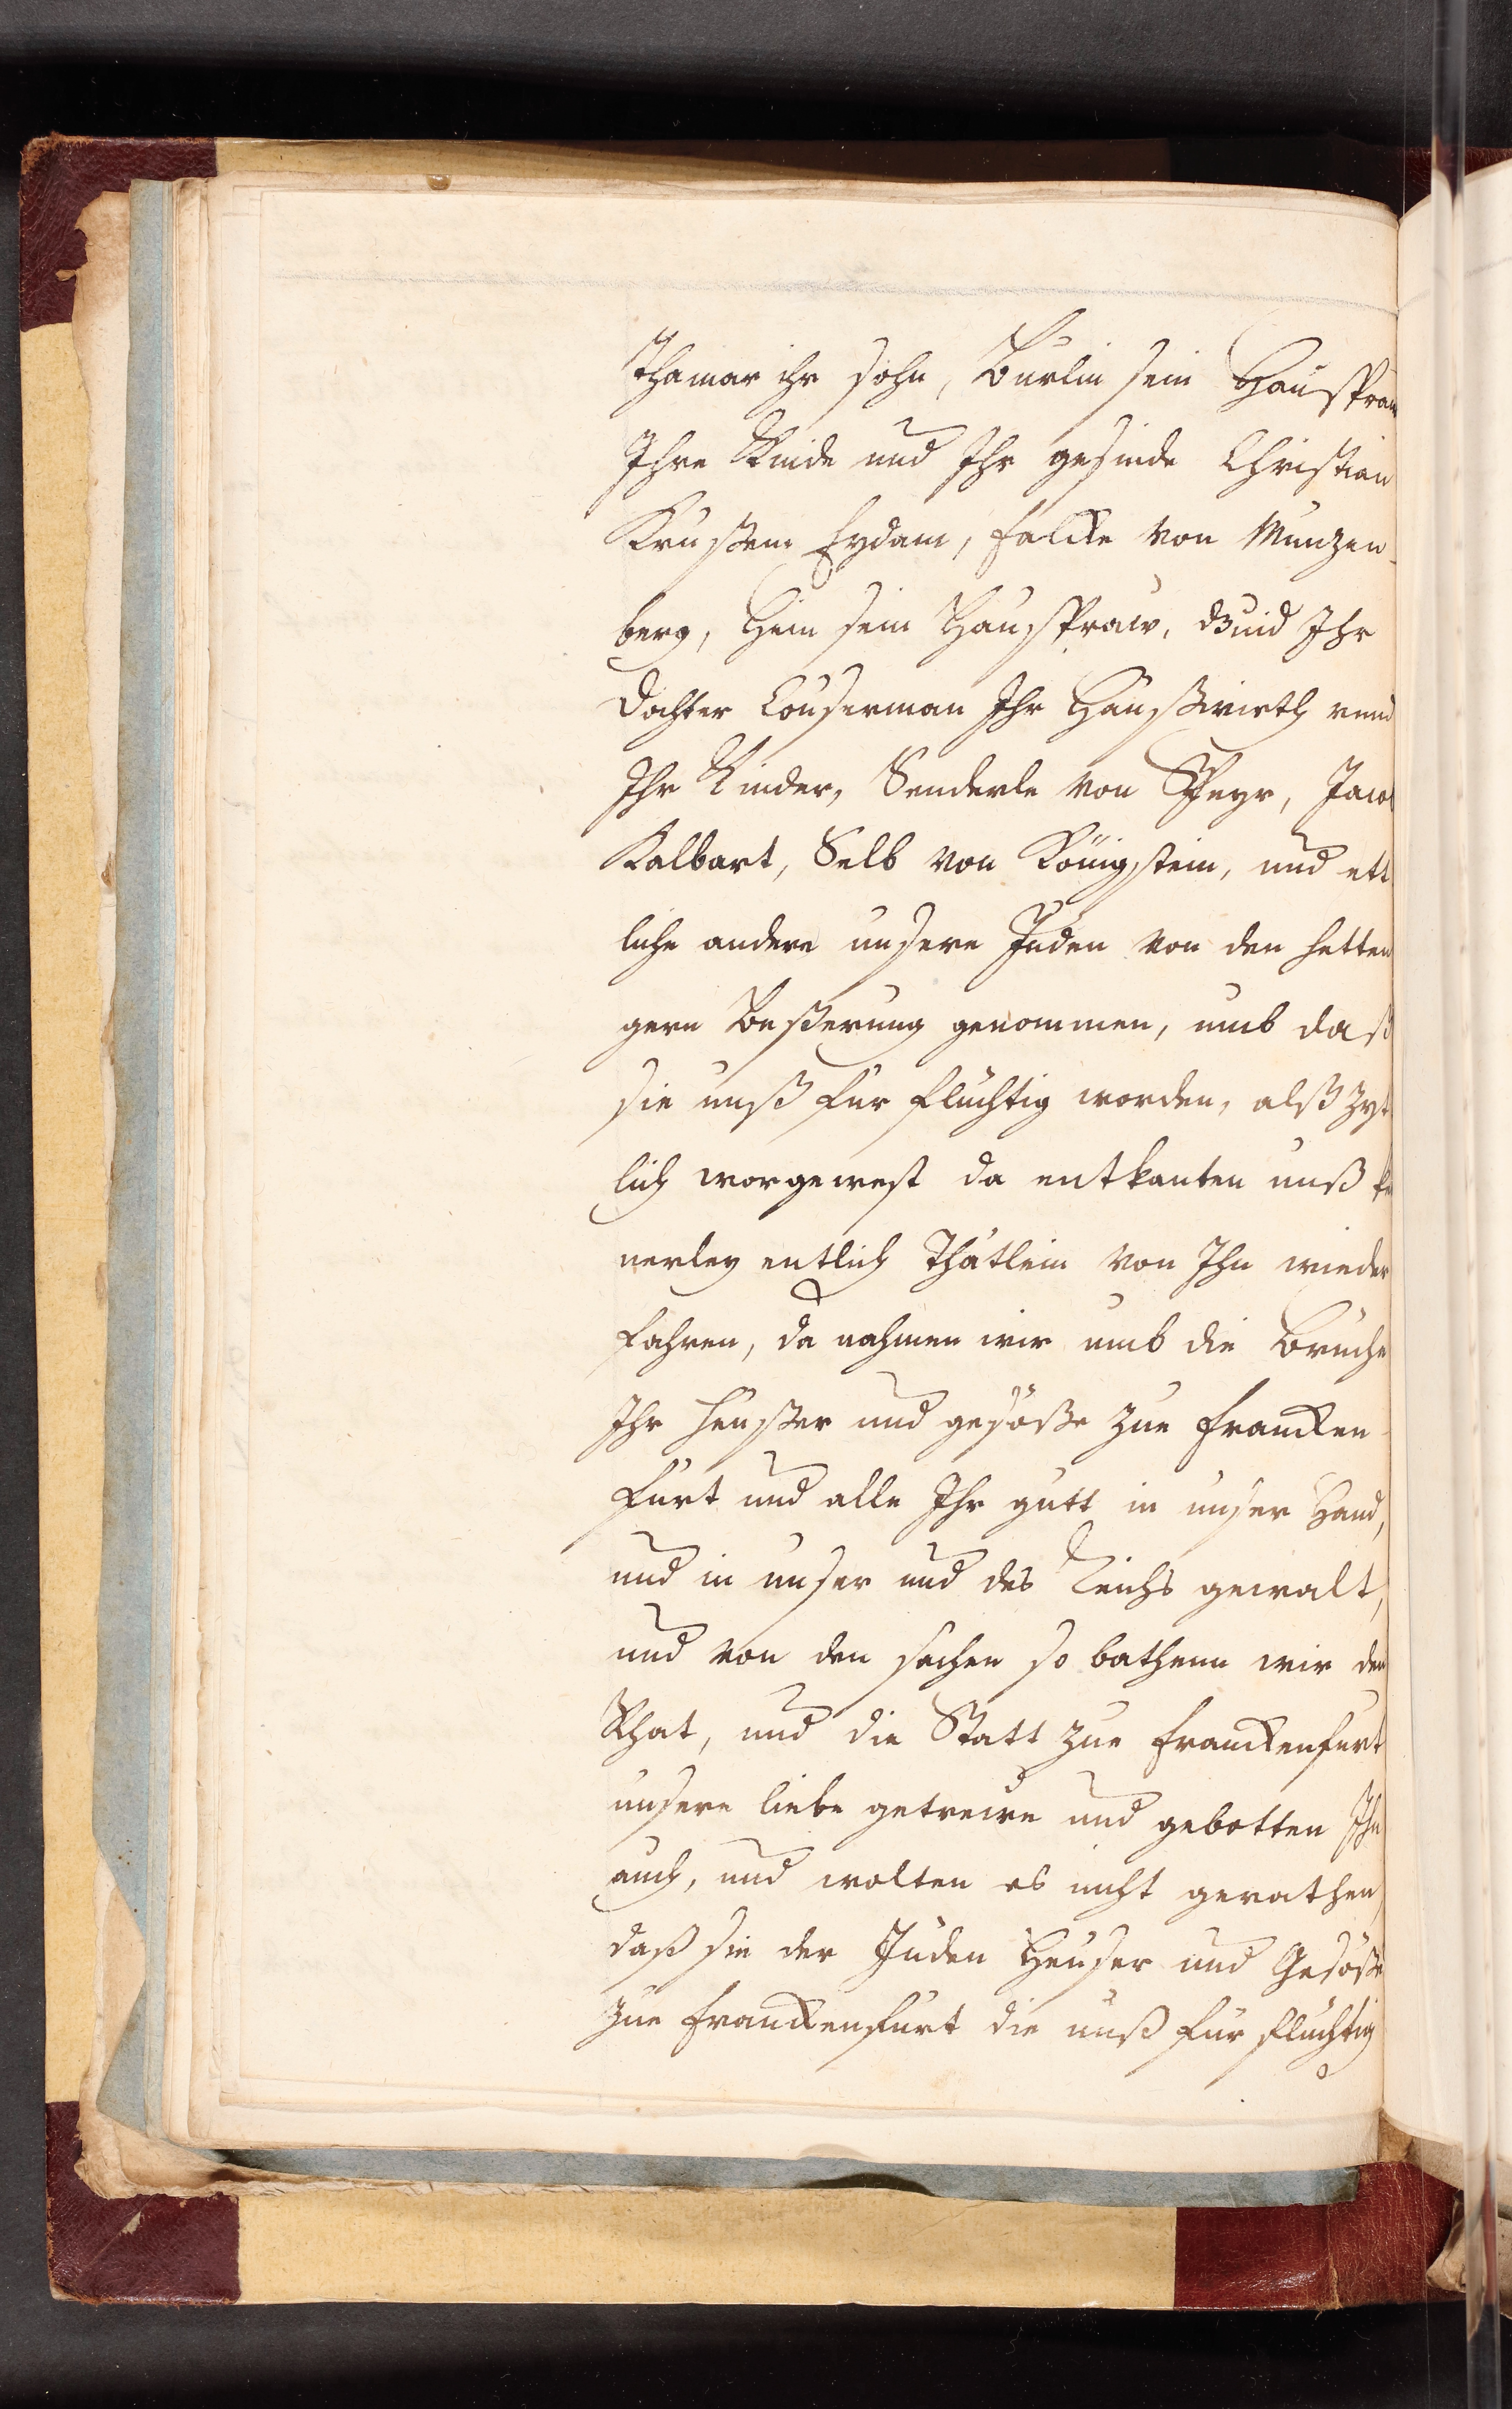 Thamar ihr sohn, Burlin sein Hausfraw
Ihre Kinde und Ihr gesinde Christian
Krußem Eydam, falcke von Munzen-
berg, Hein sein Hausfraw, Ihr
dochter Couserman Ihr Haußwirth unnd
Ihr Kinder, Senderle von Speyr, Jacob
Kalbart, Selb von Königstein, und ett
liche andere unsere Juden von den hetten
gern Beßerung genommen, umb daß
sie unß fur fluchtig worden, alß zyt
lich worgewest da entkanten unß ke
nerley entlich Thätlein von Ihn wieder
fahren, da nahmen wir umb die Bruche
Ihr heußer und gesöße zue francken
furt und alle Ihr gutt in unser Hand,
und in unser und des Reichs gewalt,
und von den sachen so bathenn wir den
Rhat, und die Statt zue franckenfurt
unsere liebe getreüe und gebotten Ihn
auch, und wolten es nicht gerathen,
daß sie der Juden Heuser und Gesöße
zue franckenfurt die unß fur fluchtig